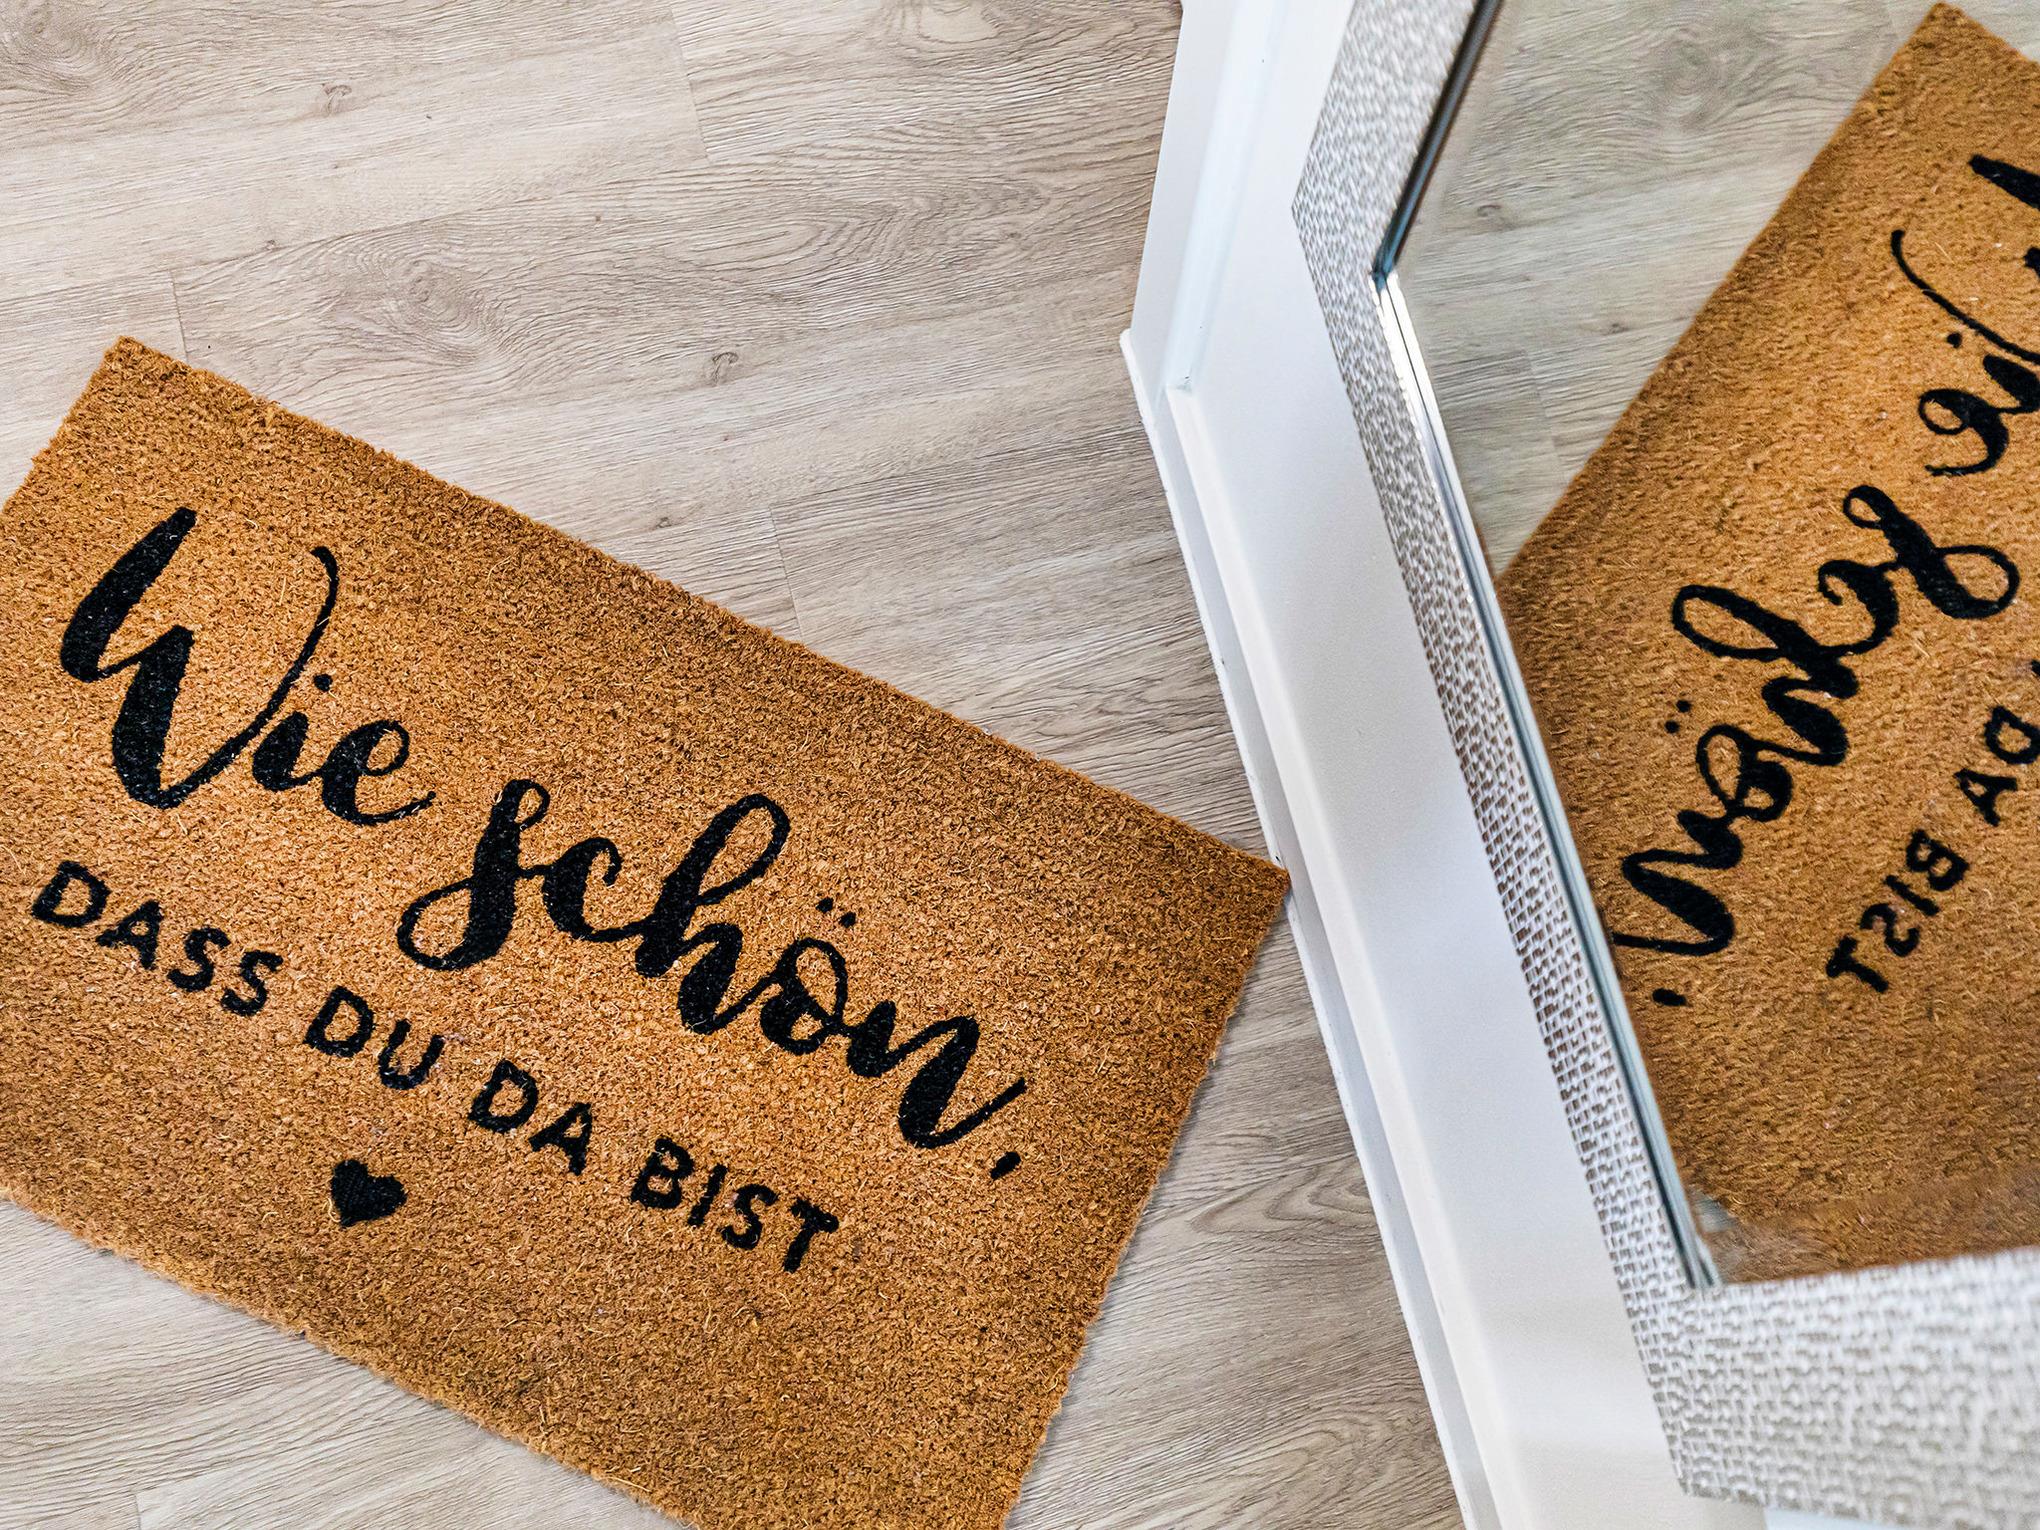 Wie schön,
DASS DU DA BIST
Wie schön,
DA BIST